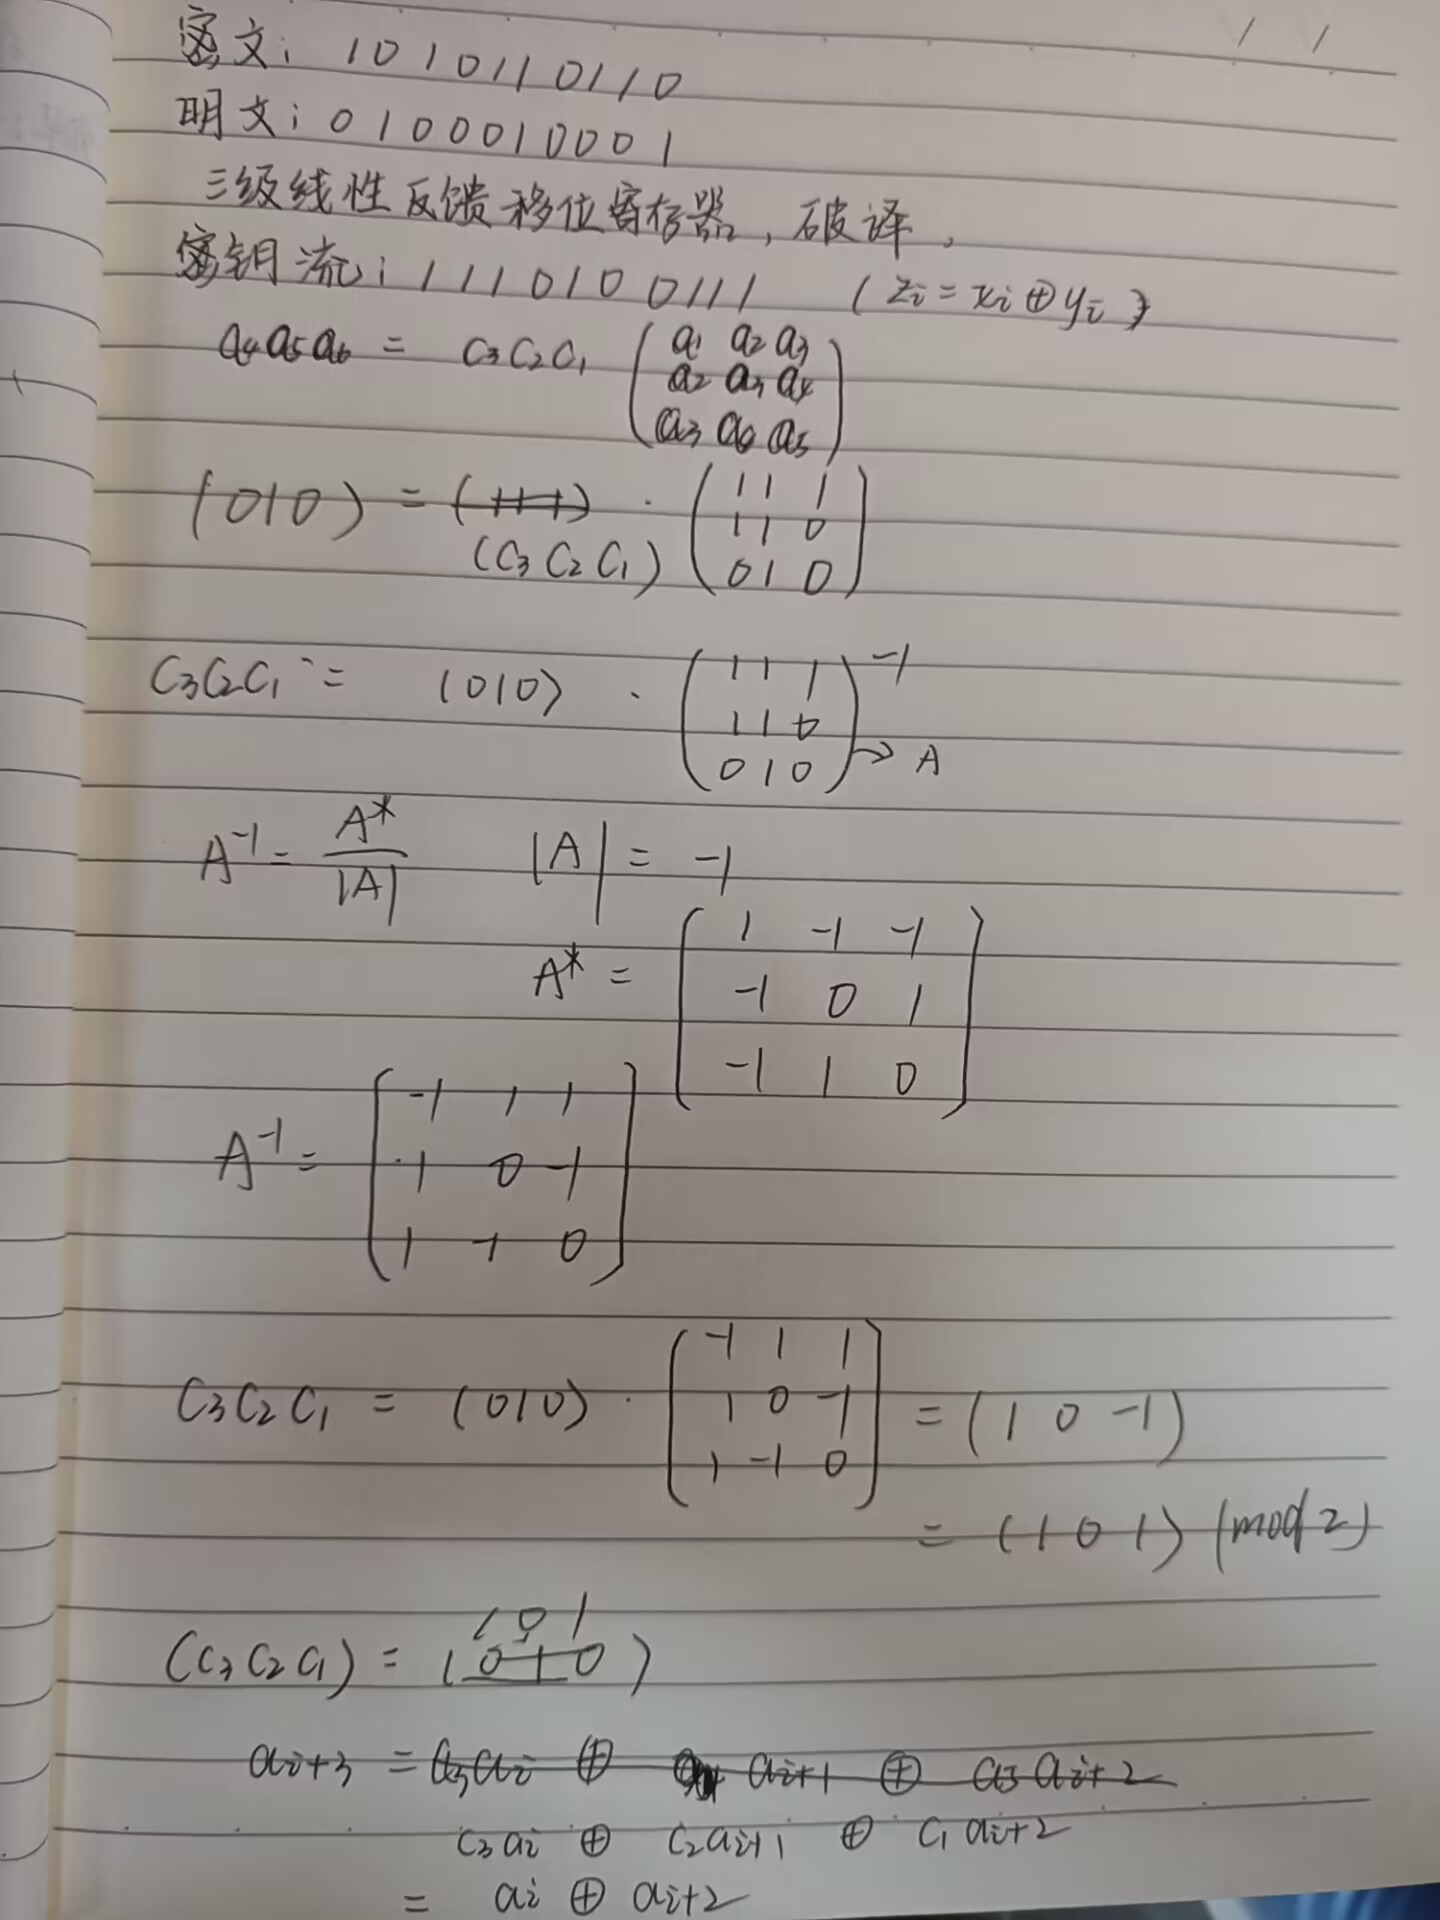 密文: 1010110110
明文: 0100010001
三级线性反馈移位寄存器, 破译,
密钥流: 1110100111 (zi = xi ⊕ yi)
a4a5a6 = c3c2c1 (a1 a2 a3
a2 a3 a4
a3 a4 a5)
(010) = (111) · (1 1 1
(c3 c2 c1) 1 1 0
0 1 0)
c3c2c1 = (010) · (1 1 1
1 1 0
0 1 0)⁻¹ → A
A⁻¹ = A*/|A| |A| = -1
A* = [1 -1 -1
-1 0 1
-1 1 0]
A⁻¹ = [-1 1 1
1 0 -1
1 -1 0]
c3c2c1 = (010) · [-1 1 1
1 0 -1
1 -1 0] = (1 0 -1)
= (1 0 1) (mod 2)
1 0 1
(c3 c2 c1) = (0 1 0)
ai+3 = a3ai ⊕ ai+1 ⊕ ai+2
c3ai ⊕ c2ai+1 ⊕ c1ai+2
= ai ⊕ ai+2